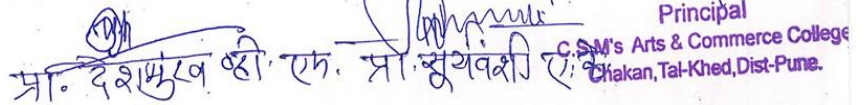 Principal
C.S.M's Arts & Commerce College
Chakan, Tal-Khed, Dist-Pune.
प्रा. देशमुख व्ही. एम. प्रा. सूर्यवंशी ए.